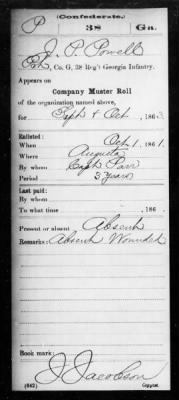 (Confederate.)
P 38 Ga.
J. P. Powell
Pvt, Co. G, 38 Reg't Georgia Infantry.
Appears on
Company Muster Roll
of the organization named above,
for Sept & Oct, 1863.
Enlisted:
When Oct 1, 1861.
Where Augusta
By whom Capt Parr
Period 3 years
Last paid:
By whom
To what time , 186 .
Present or absent Absent
Remarks: Absent Wounded
Book mark:
J Jacobson
(642) Copyist.